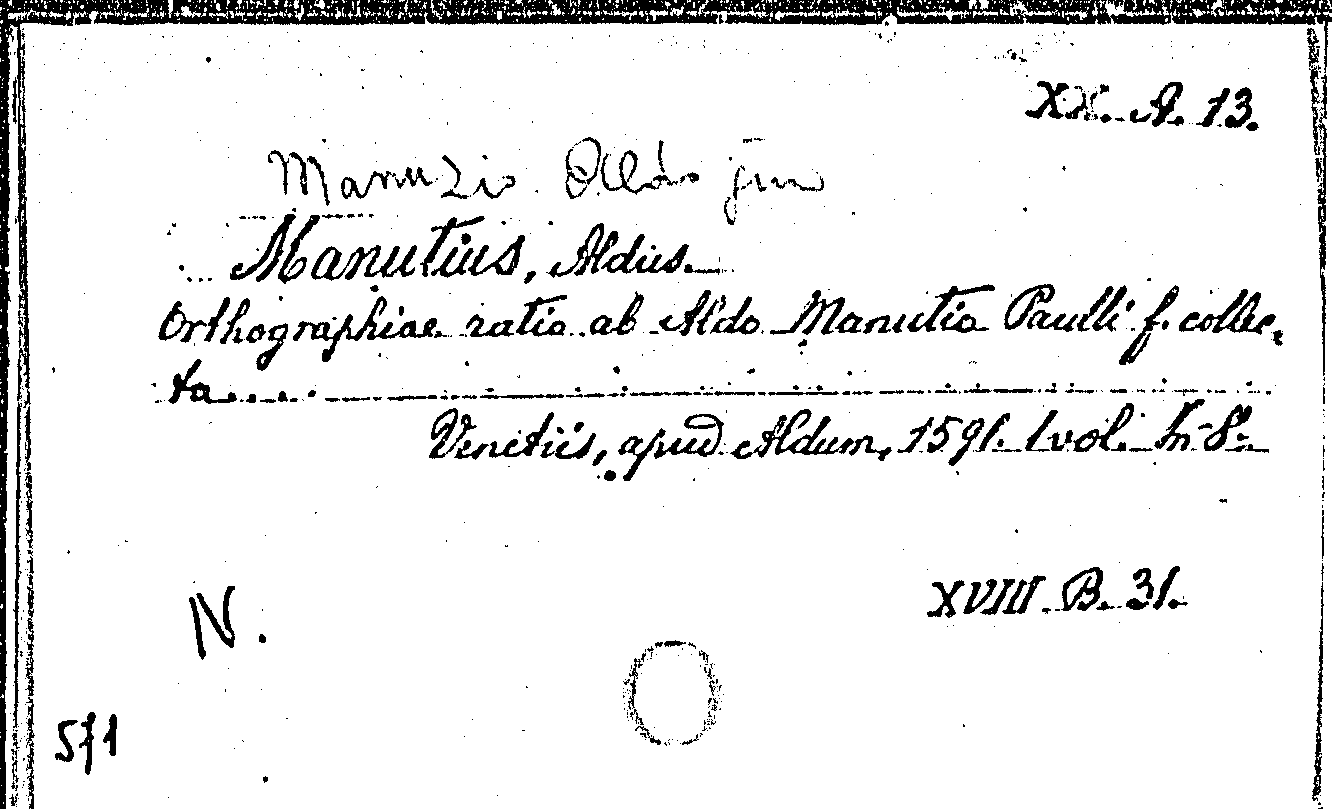 XX. A. 13.
Manuzio Aldo jun
Manutius, Aldus.
Orthographiae ratio ab Aldo Manutio Paulli f. collec-
ta....
Venetiis, apud Aldum, 1591. 1 vol. In-8.
XVIII. B. 31.
N.
571